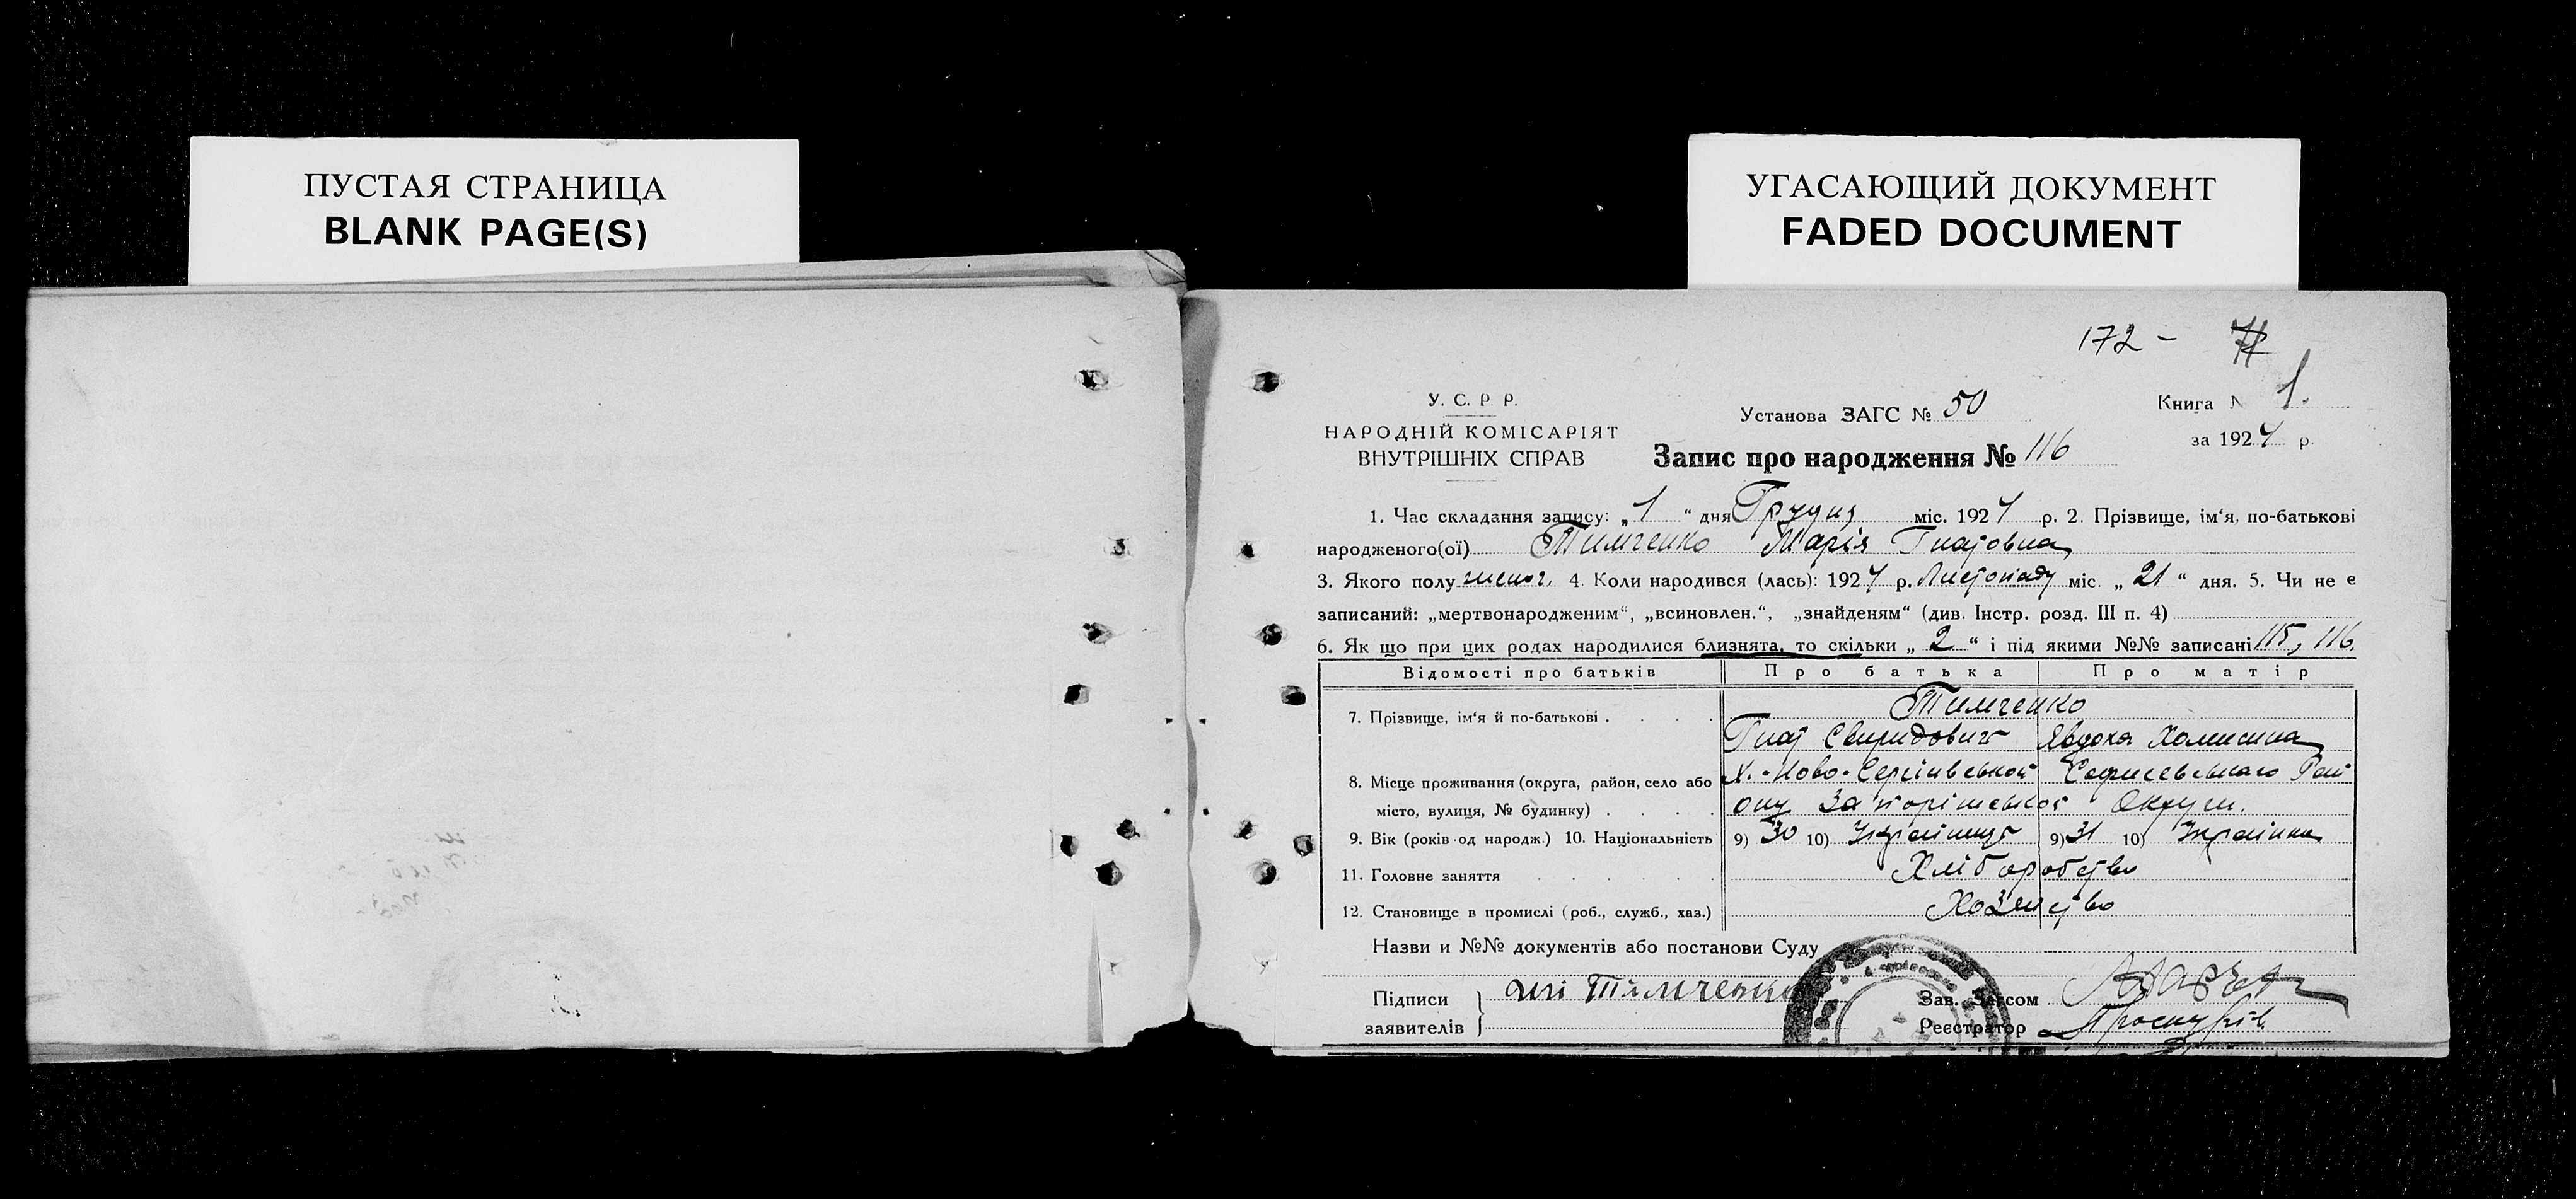 ПУСТАЯ СТРАНИЦА
BLANK PAGE(S)
УГАСАЮЩИЙ ДОКУМЕНТ
FADED DOCUMENT
172 -
У. С. Р. Р.
НАРОДНІЙ КОМІСАРІЯТ
ВНУТРІШНІХ СПРАВ
Установа ЗАГС № 50
Запис про народження № 116
Книга № 1.
за 1924 р.
1. Час складання запису: „1“ дня Грудня міс. 1924 р. 2. Прізвище, ім'я, по-батькові
народженого(ої) Тимченко Марія Гнатовна
3. Якого полу жіноч. 4. Коли народився (лась): 1924 р. Листопаду міс. „21“ дня. 5. Чи не є
записаний: „мертвонародженим“, „всиновлен.“, „знайденям“ (див. Інстр. розд. III п. 4)
6. Як що при цих родах народилися близнята, то скільки „2“ і під якими №№ записані 115, 116.
Відомості про батьків Про батька Про матір
7. Прізвище, ім'я й по-батькові . . . . Тимченко
Гнат Свиридович Явдоха Хомисина
8. Місце проживання (округа, район, село або Х.-Ново-Сергіивськой Софиевського Рай
місто, вулиця, № будинку) . . . . ону Запоріжськой Округи.
9. Вік (років од народж.) 10. Національність 9) 30 10) Українець 9) 31 10) Українка
11. Головне заняття . . . . . . Хліборобство
12. Становище в промислі (роб., служб., хаз.) Хозяйство
Назви и №№ документів або постанови Суду
Підписи заявителів Тимченко
Зав. Загсом
Реєстратор